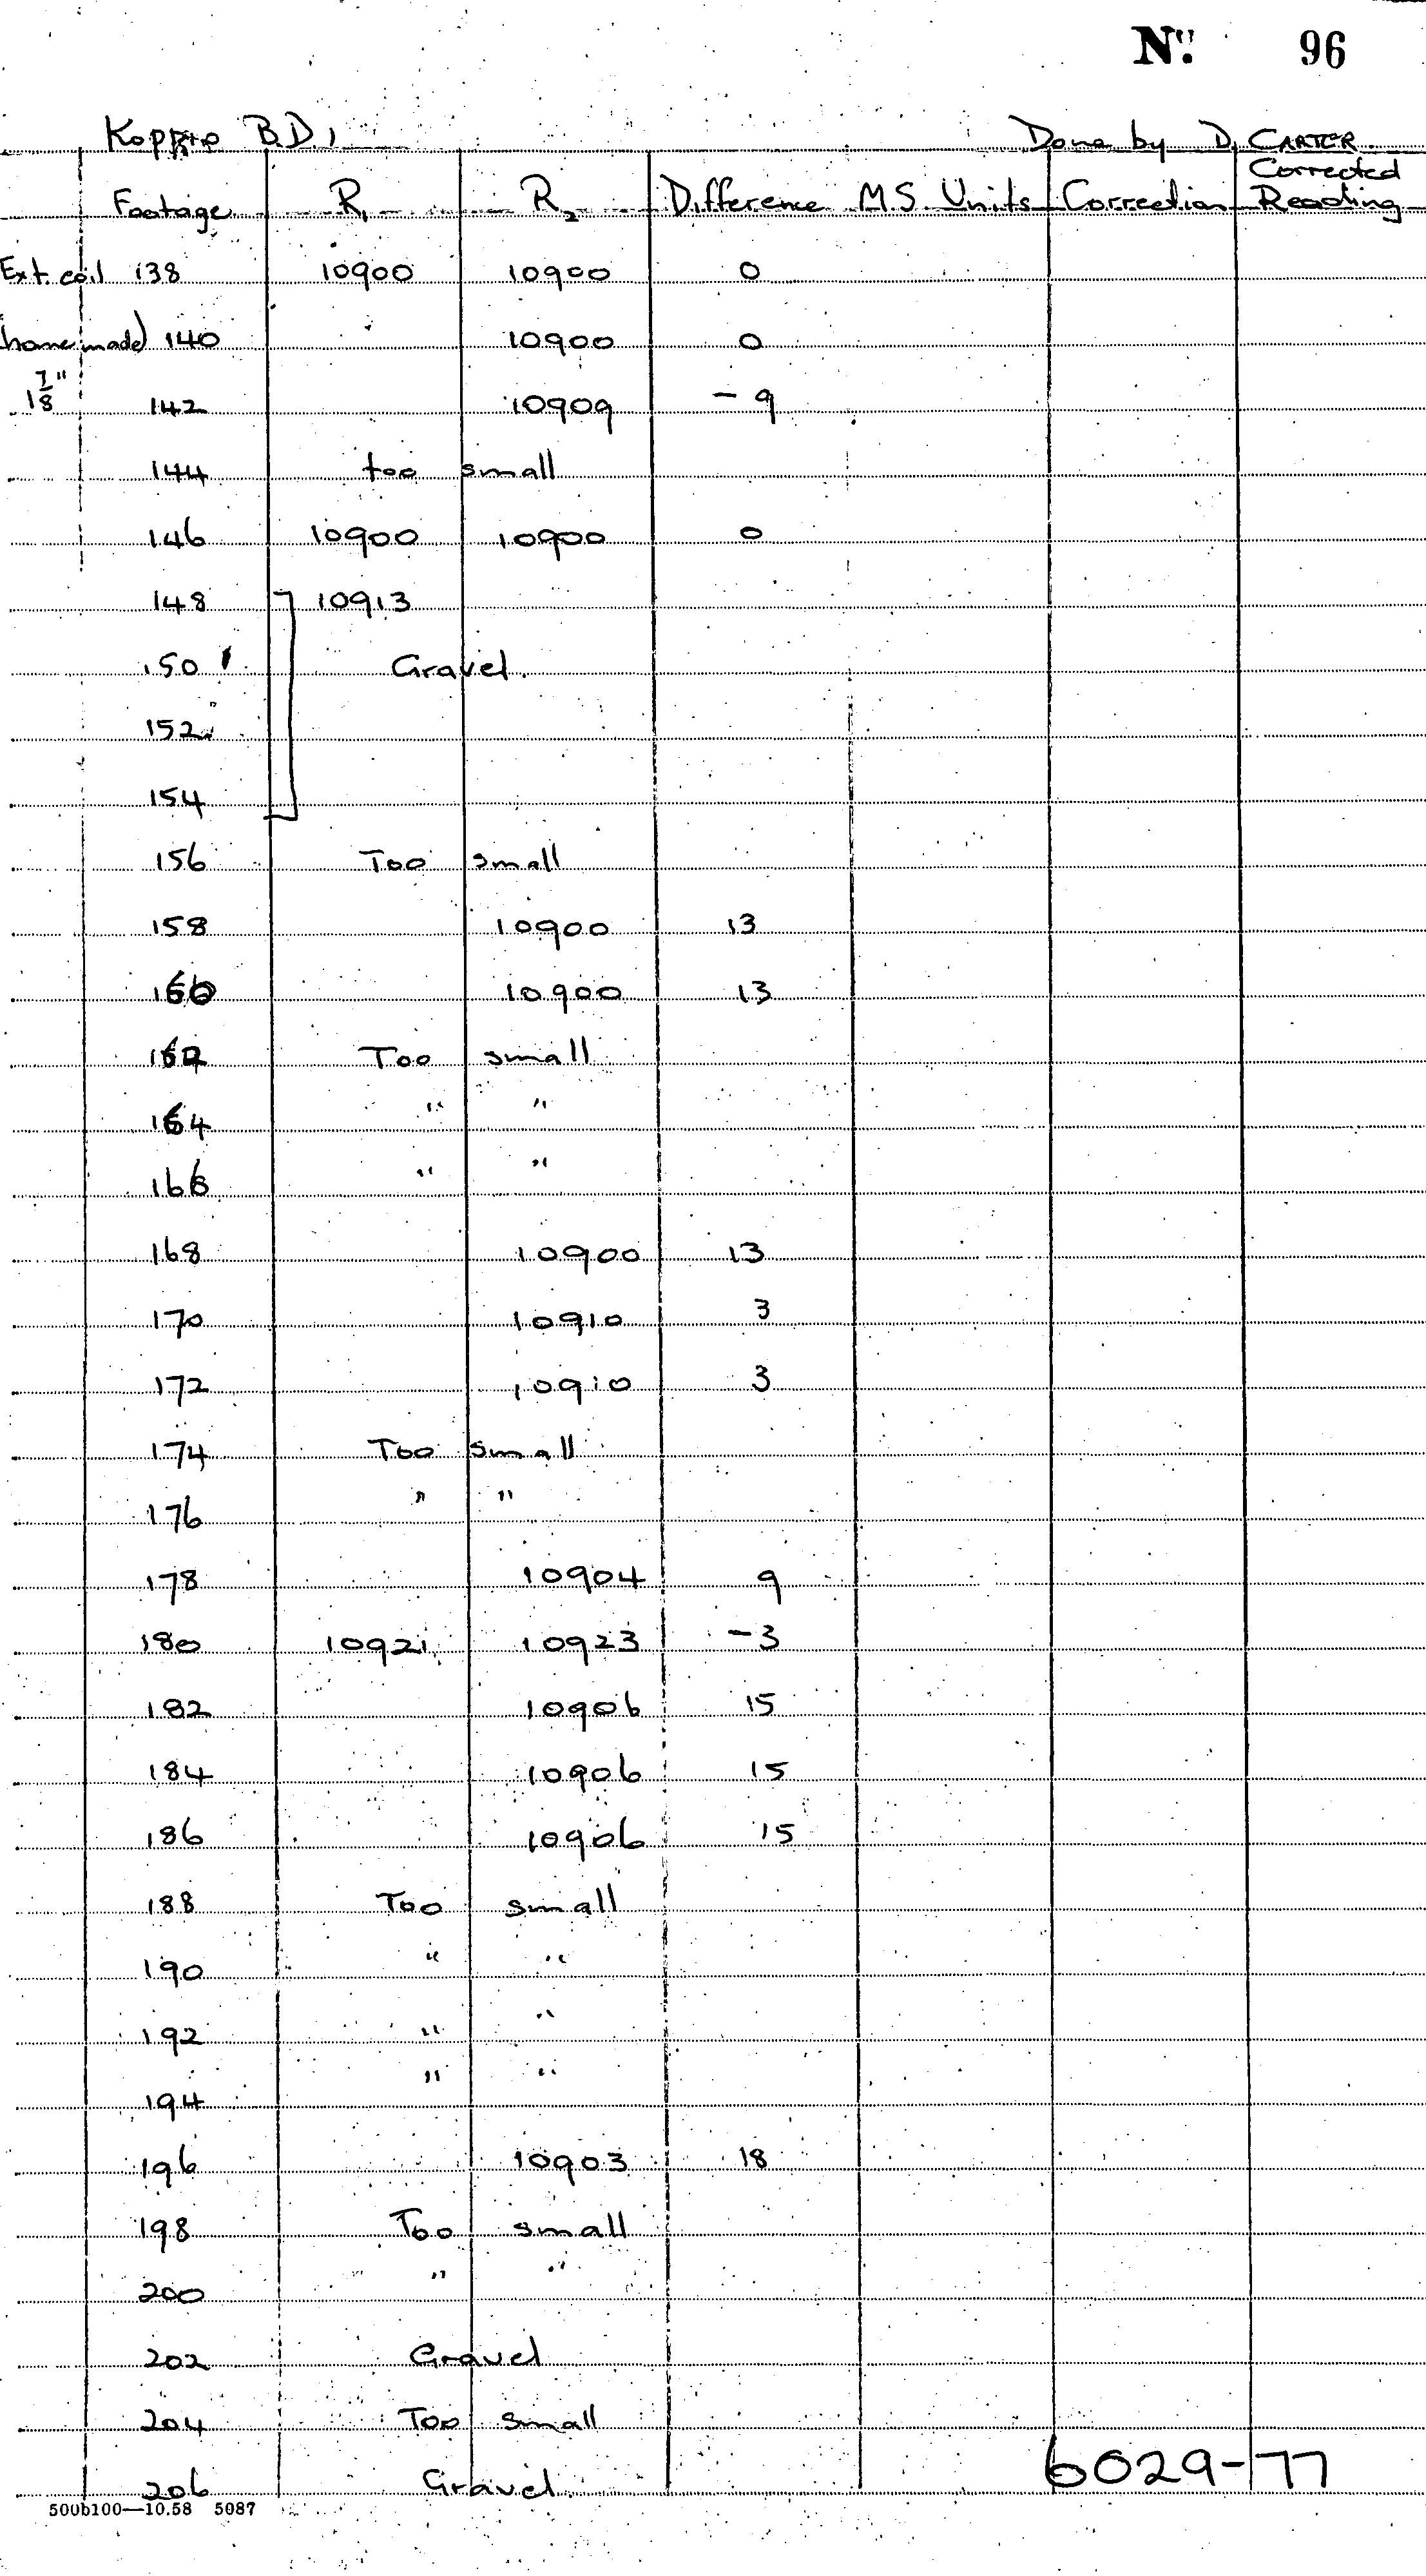 Nº. 96
Koppio B.D.1 Done by D. CARTER
Footage R1 R2 Difference M.S. Units Correction Corrected Reading
Ext. coil 138 10900 10900 0
homemade) 140 10900 0
1 7/8" 142 10909 -9
144 too small
146 10900 10900 0
148 10913
150 Gravel
152
154
156 Too small
158 10900 13
160 10900 13
162 Too small
164 " "
166 " "
168 10900 13
170 10910 3
172 10910 3
174 Too small
176 " "
178 10904 9
180 10921 10923 -3
182 10906 15
184 10906 15
186 10906 15
188 Too small
190 " "
192 " "
194 " "
196 10903 18
198 Too small
200 " "
202 Gravel
204 Too small
206 Gravel
6029-77
500b100—10.58 5087